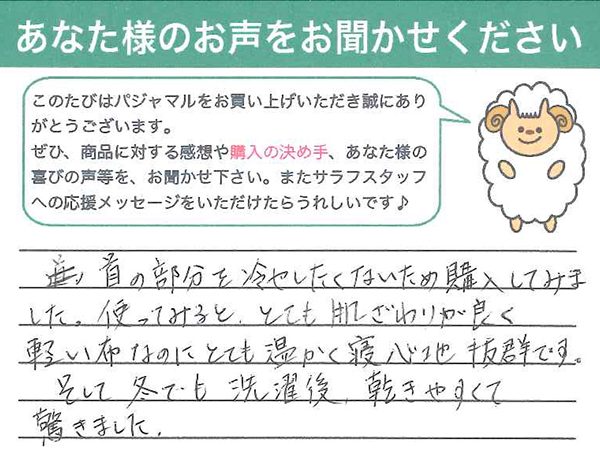 あなた様のお声をお聞かせください
このたびはパジャマルをお買い上げいただき誠にあり
がとうございます。
ぜひ、商品に対する感想や購入の決め手、あなた様の
喜びの声等を、お聞かせ下さい。またサラフスタッフ
への応援メッセージをいただけたらうれしいです♪
首の部分を冷やしたくないため購入してみま
した。使ってみると、とても肌ざわりが良く
軽い布なのにとても温かく寝心地抜群です。
そして冬でも洗濯後、乾きやすくて
驚きました.